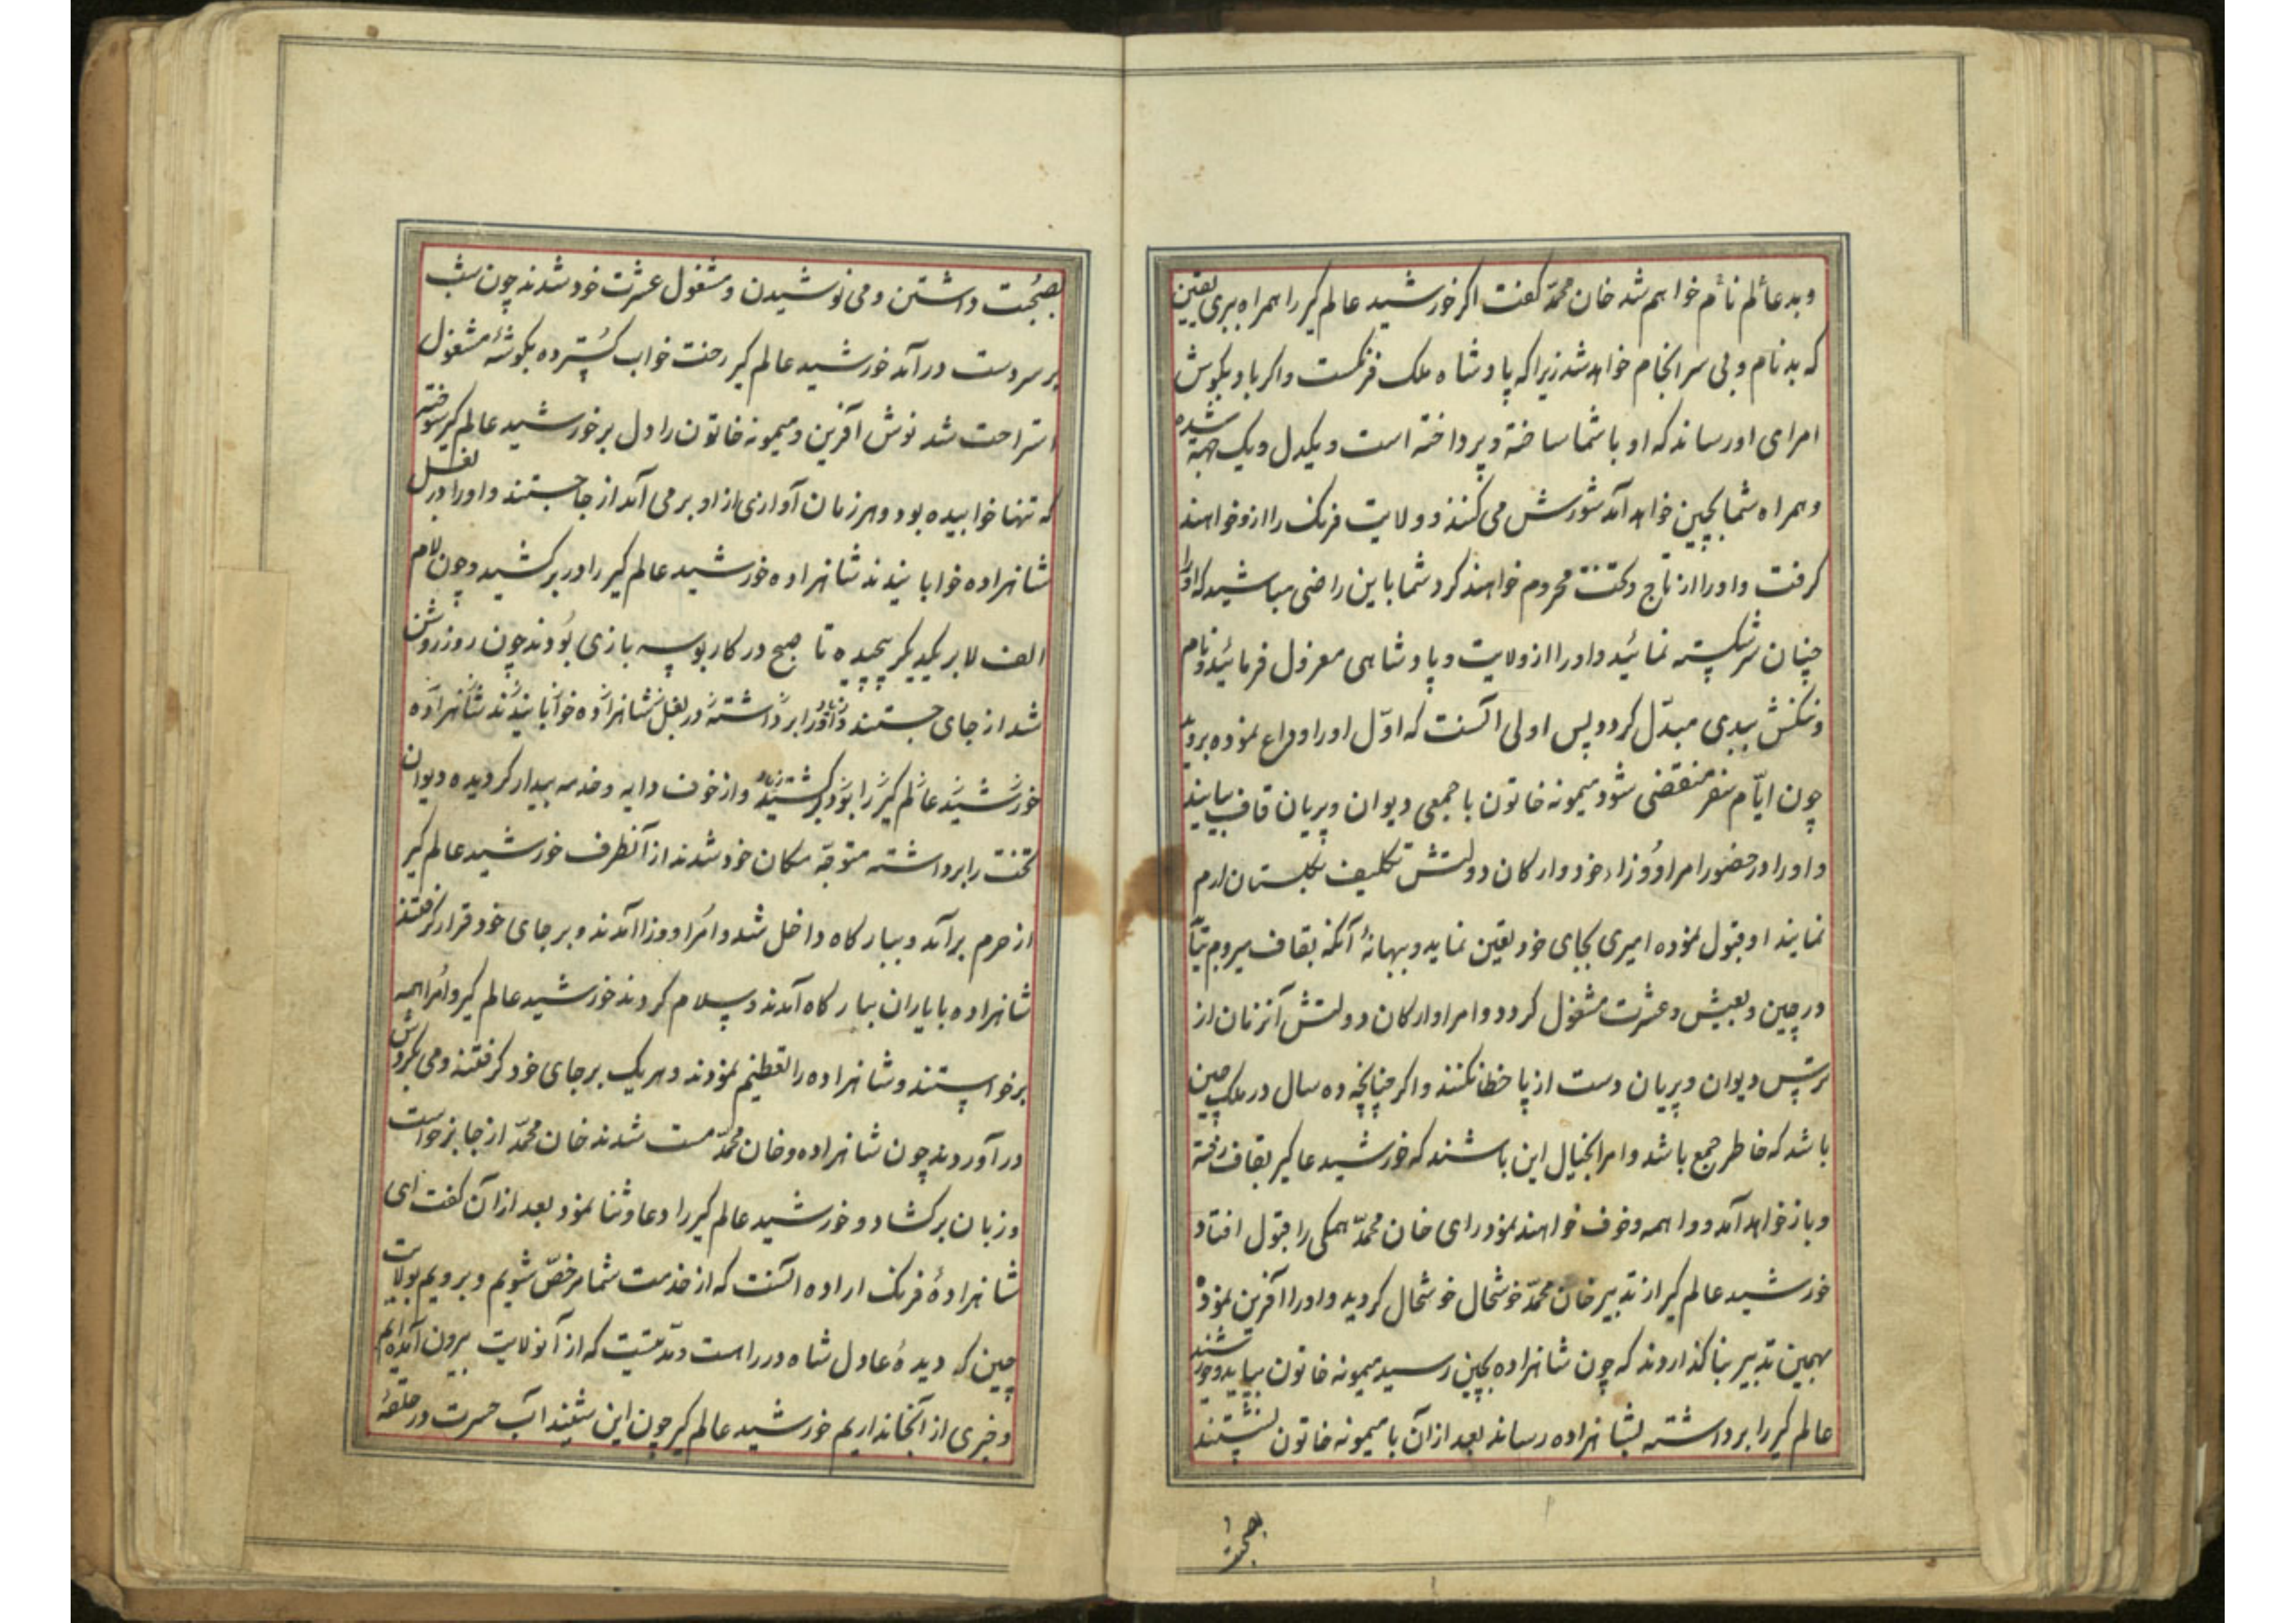 وبدعالم نام خواهم شد خان محمّد کفت اکر خورشید عالم کیر را همراه ببری یقین
که بدنام و بی سرانجام خواهد شد زیرا که پادشاه ملک فرنکست واکر باد بکوش
امرای اورساند که او باشما ساخته و پرداخته است و یکدل و یک جهة شده
وهمراه شما بچین خواهد آمد شورش می کنند و ولایت فرنک را ازو خواهند
کرفت واورا از تاج وتخت محروم خواهند کرد شما باین راضی مباشید که اورا
چنان سرشکسته نمائید واورا از ولایت و پادشاهی معزول فرمائید و نام
وننکش ببدی مبدّل کردد پس اولی آنست که اوّل اورا وداع نموده بروید
چون ایّام سفر منقضی شود میمونه خاتون با جمعی دیوان و پریان قاف بیایند
واورا در حضور امرا و وزراء خود وارکان دولتش تکلیف کلستان ارم
نمایند او قبول نموده امیری بجای خود تعین نماید و ببهانۀ آنکه بقاف میروم بیآ
در چین و بعیش و عشرت مشغول کردد وامرا وارکان دولتش آنزمان از
ترس دیوان و پریان دست از پا خطا نکنند واکر چنانچه ده سال در ملک چین
باشد که خاطر جمع باشد وامرا بخیال این باشند که خورشید عالمکیر بقاف رفته
وباز خواهد آمد و واهمه وخوف خواهند نمود رای خان محمّد همکی را قبول افتاد
خورشید عالم کیر از تدبیر خان محمّد خوشحال خوشحال کردید واورا آفرین نمود
بهمین تدبیر بنا کذاردند که چون شاهزاده بچین رسید میمونه خاتون بیاید وخورشید
عالم کیر را برداشته بشاهزاده رساند بعد ازآن با میمونه خاتون نشستند
بصحبت
بصحبت داشتن ومی نوشیدن ومشغول عشرت خود شدند چون شب
بر سر دست درآمد خورشید عالم کیر رخت خواب کسترده بکوشۀ مشغول
استراحت شد نوش آفرین و میمونه خاتون را دل بر خورشید عالم کیر سوخت
که تنها خوابیده بود وهر زمان آوازی از او بر می آمد از جا جستند واورا در بغل
شاهزاده خوابانیدند شاهزاده خورشید عالم کیر را در بر کشید وچون لام
الف لا بر یکدیکر پیچیده تا صبح در کار بوسه بازی بودند چون روز روشن
شد از جای جستند واورا برداشته در بغل شاهزاده خوابانیدند شاهزاده
خورشید عالم کیر را واز خوف دایه وخدمه بیدار کردیده دیوان
تخت را برداشته متوجّه مکان خود شدند از آنطرف خورشید عالم کیر
از حرم برآمد و ببارکاه داخل شد وامرا ووزرا آمدند وبر جای خود قرار کرفتند
شاهزاده با یاران ببارکاه آمدند وسلام کردند خورشید عالم کیر وامرا همه
برخواستند وشاهزاده را تعظیم نمودند وهر یک بر جای خود کرفتند ومی بکردش
درآوردند چون شاهزاده وخان محمّد مست شدند خان محمّد از جا برخواست
وزبان برکشاد وخورشید عالم کیر را دعا وثنا نمود بعد ازآن کفت ای
شاهزادۀ فرنک اراده آنست که از خدمت شما مرخصّ شویم وبرویم بولایت
چین که دیدۀ عادل شاه در راهست ومدّتیست که از آنولایت بیرون آمده ایم
وخبری از آنجا نداریم خورشید عالم کیر چون این شنید آب حسرت در حلقۀ